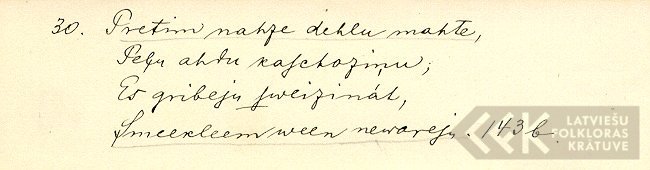 30. Pretim nahze dehlu mahte,
Peļu ahdu kaschoziņu;
Es gribeju sweizinát,
Smeekleem ween newareju. 143 b.
LATVIEŠU
FOLKLORAS
KRĀTUVE